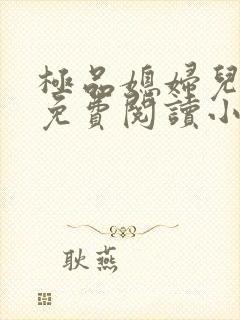 極品媳婦兒
免費閱讀小
耿燕